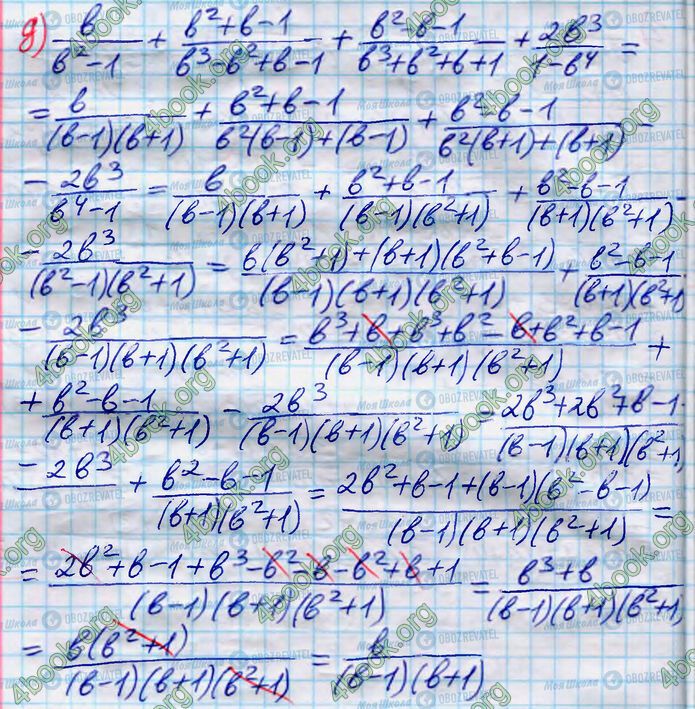 д) в/(в²-1) + (в²+в-1)/(в³-в²+в-1) + (в²-в-1)/(в³+в²+в+1) + 2в³/(1-в⁴) =
= в/((в-1)(в+1)) + (в²+в-1)/(в²(в-1)+(в-1)) + (в²-в-1)/(в²(в+1)+(в+1))
- 2в³/(в⁴-1) = в/((в-1)(в+1)) + (в²+в-1)/((в-1)(в²+1)) + (в²-в-1)/((в+1)(в²+1)) -
- 2в³/((в²-1)(в²+1)) = (в(в²+1)+(в+1)(в²+в-1))/((в-1)(в+1)(в²+1)) + (в²-в-1)/((в+1)(в²+1))
- 2в³/((в-1)(в+1)(в²+1)) = (в³+в+в³+в²-в+в²+в-1)/((в-1)(в+1)(в²+1)) +
+ (в²-в-1)/((в+1)(в²+1)) - 2в³/((в-1)(в+1)(в²+1)) = (2в³+2в²+в-1)/((в-1)(в+1)(в²+1))
- 2в³ + (в²-в-1)/((в+1)(в²+1)) = (2в²+в-1+(в-1)(в²-в-1))/((в-1)(в+1)(в²+1)) =
= (2в²+в-1+в³-в²-в-в²+в+1)/((в-1)(в+1)(в²+1)) = (в³+в)/((в-1)(в+1)(в²+1))
= в(в²+1)/((в-1)(в+1)(в²+1)) = в/((в-1)(в+1))
4book.org
Моя Школа
OBOZREVATEL